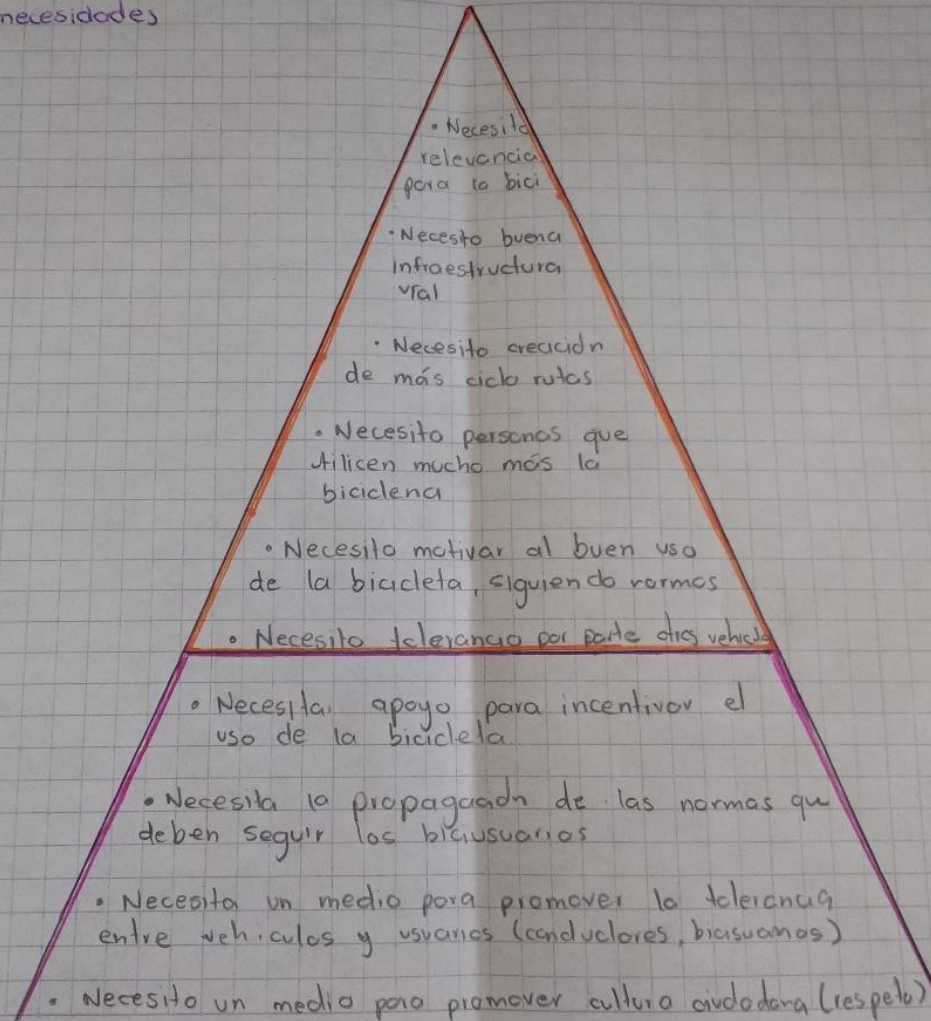 necesidades
• Necesito
relevancia
para la bici
• Necesto buena
infraestructura
vial
• Necesito creación
de más ciclo rutas
• Necesito personas que
utilicen mucho más la
bicicleta
• Necesito motivar al buen uso
de la bicicleta, siguiendo normas
• Necesito tolerancia por parte otros vehiculo
• Necesita apoyo para incentivar el
uso de la bicicleta
• Necesita la propagación de las normas que
deben seguir los biciusuarios
• Necesita un medio para promover la tolerancia
entre vehiculos y usuarios (conductores, biciusuarios)
• Necesito un medio para promover cultura ciudadana (respeto)